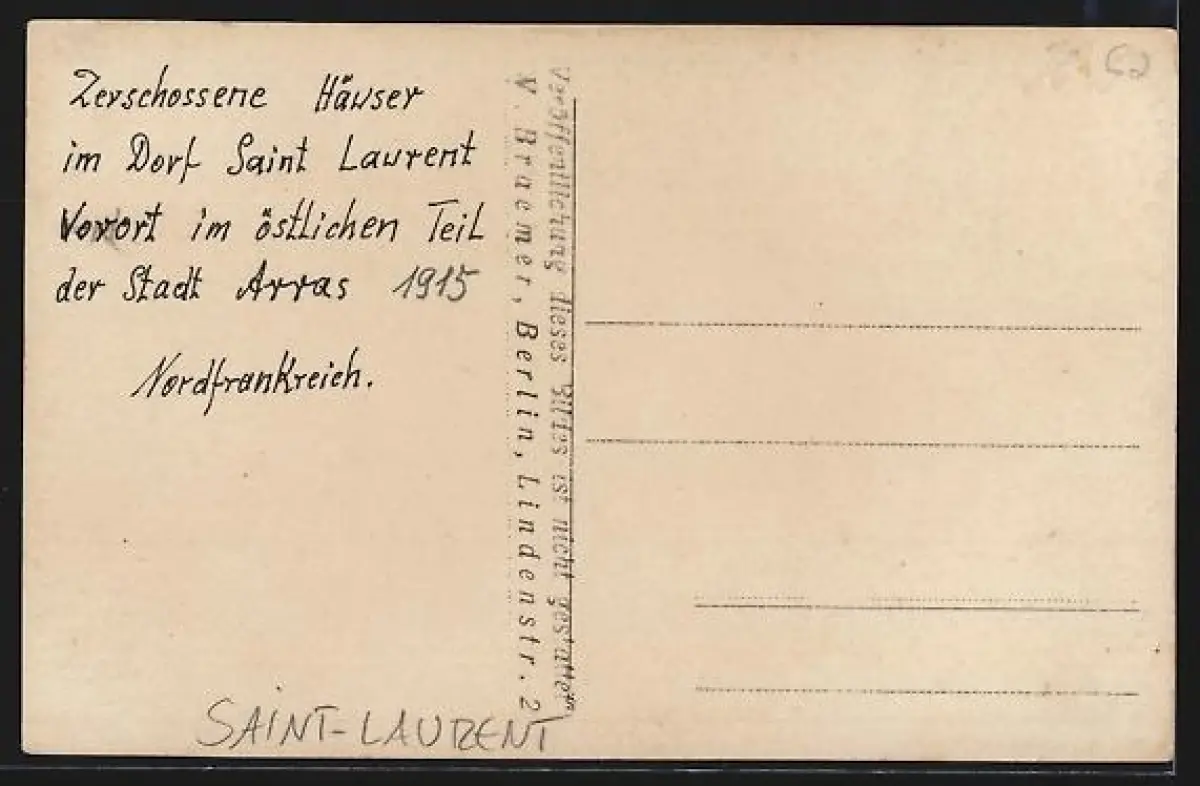 Zerschossene Häuser
im Dorf Saint Laurent
Vorort im östlichen Teil
der Stadt Arras 1915
Nordfrankreich.
Veröffentlichung dieses Bildes ist nicht gestattet
W. Braemer, Berlin, Lindenstr. 2
62
SAINT-LAURENT